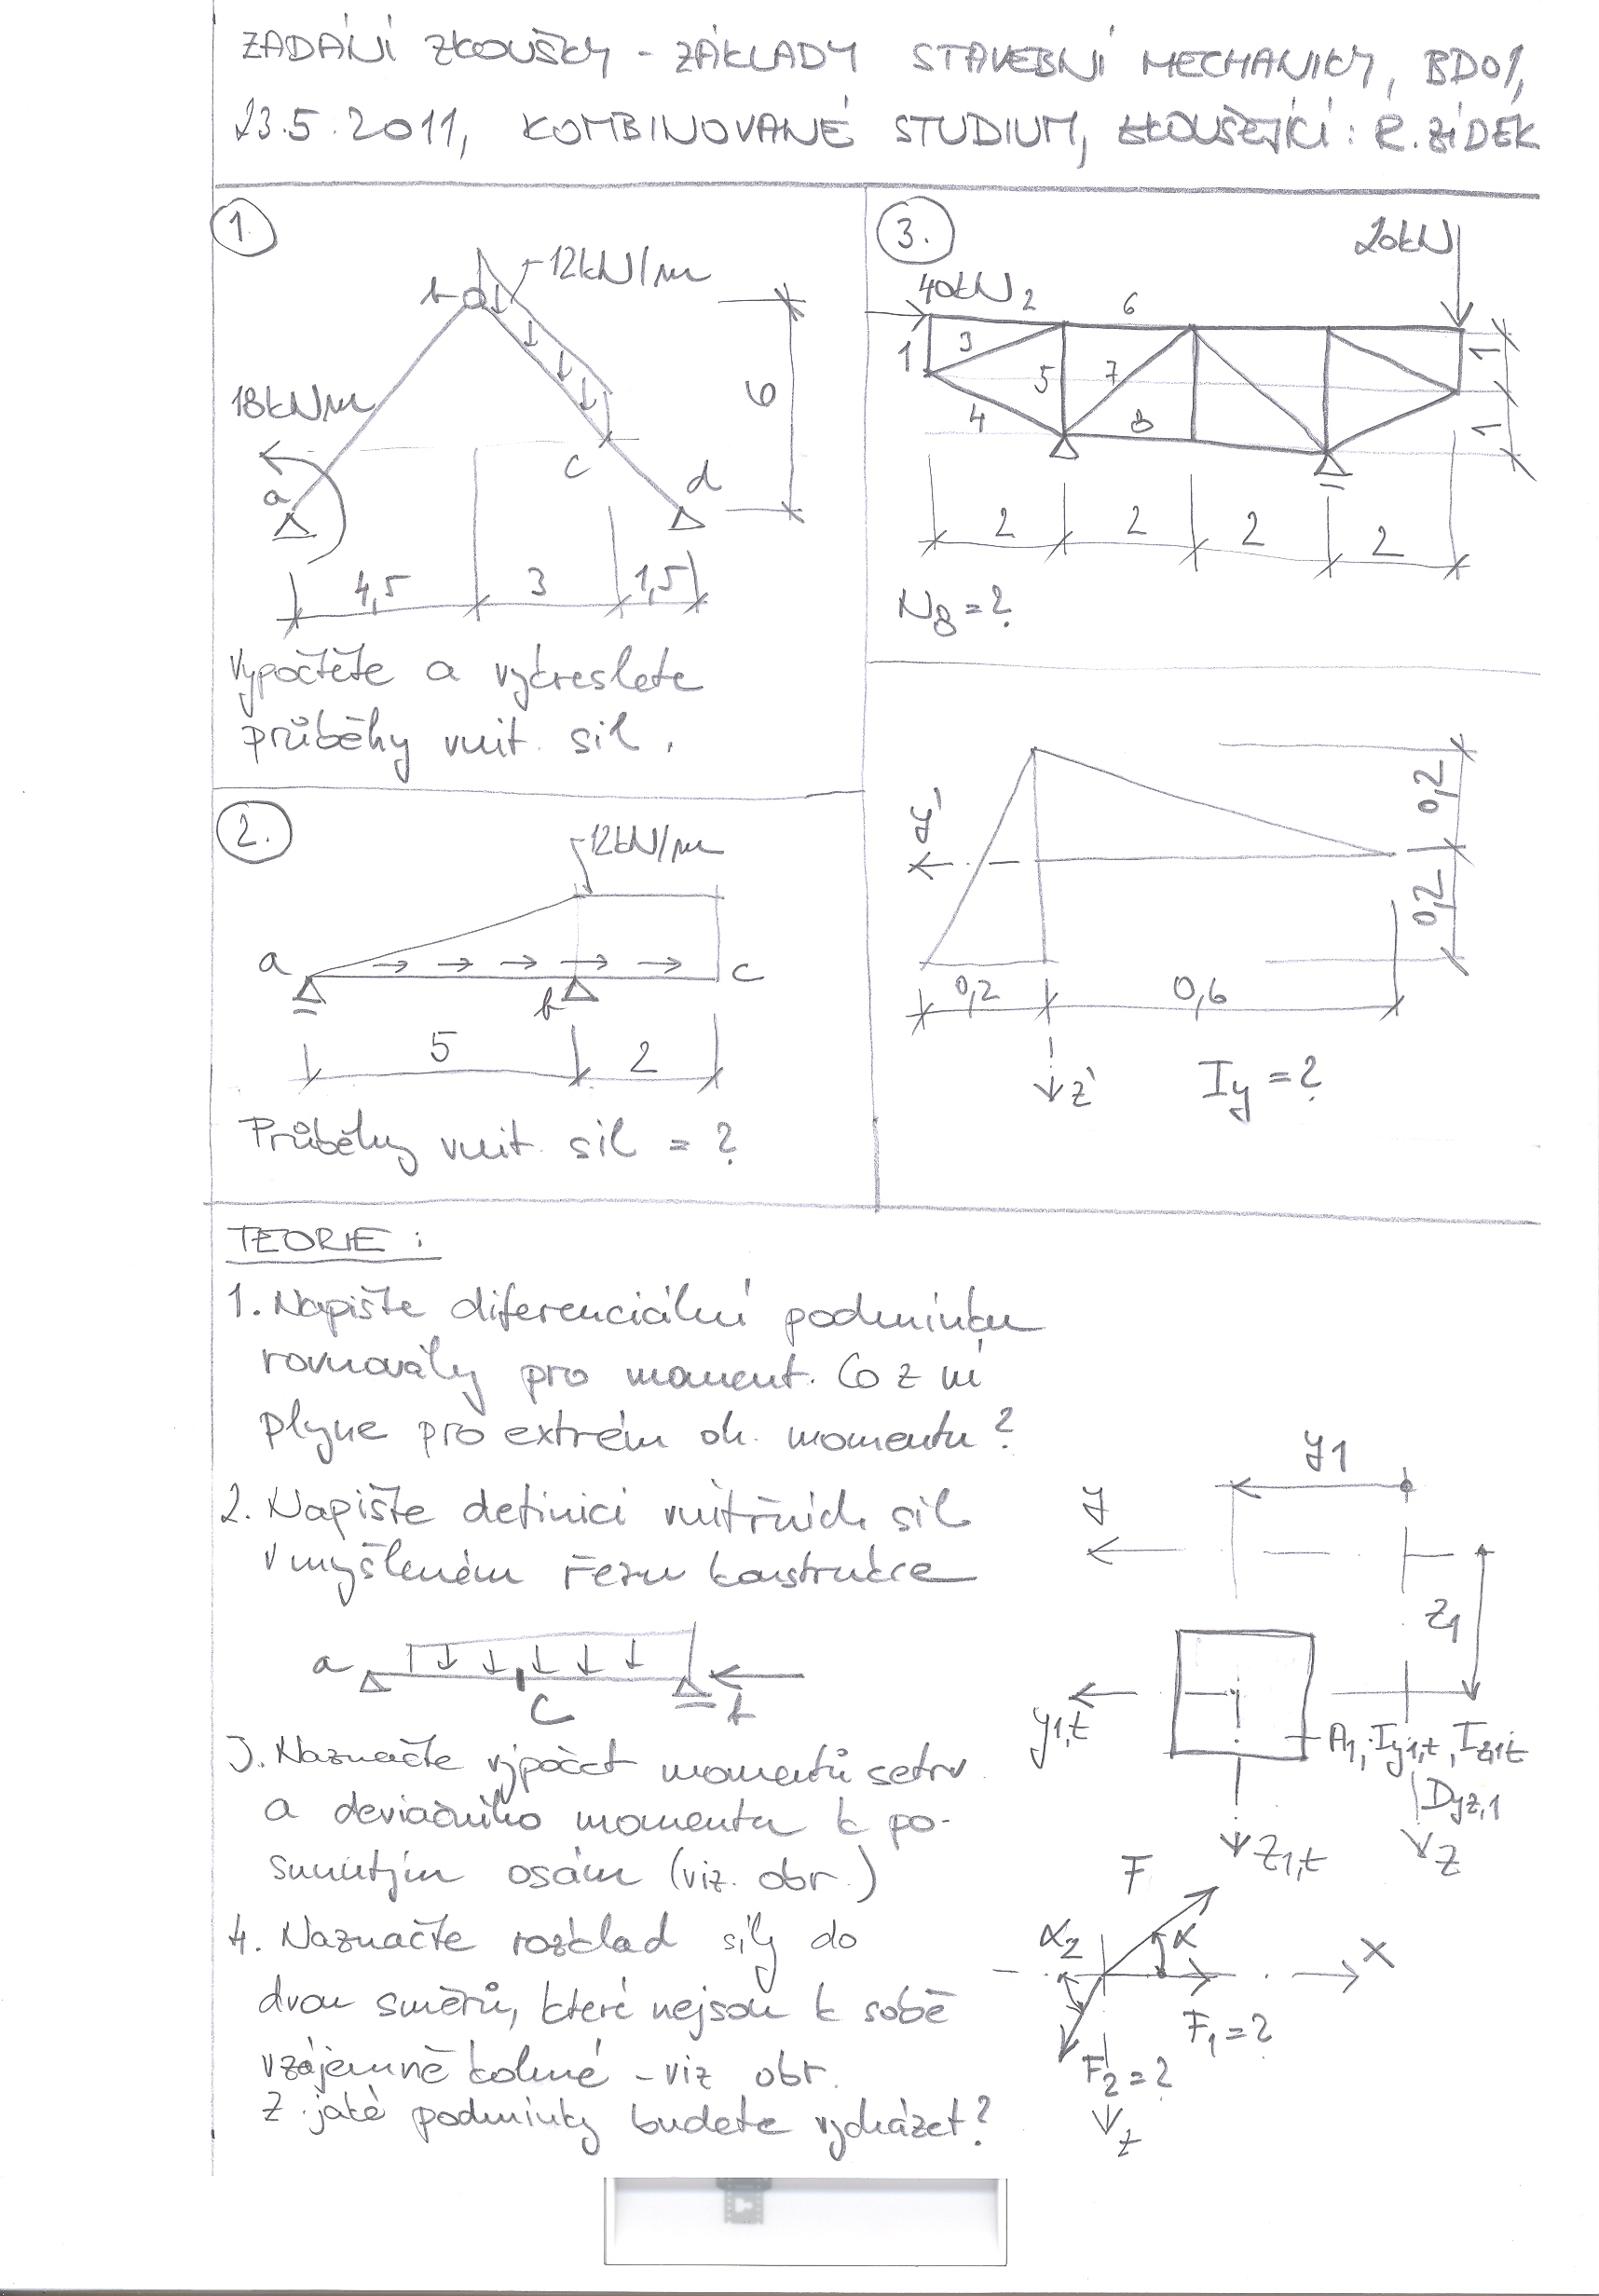 ZADÁNÍ ZKOUŠKY - ZÁKLADY STAVEBNÍ MECHANIKY, BD01,
23.5.2011, KOMBINOVANÉ STUDIUM, ZKOUŠEJÍCÍ: R. ZÍDEK
1.
b
12kN/m
18kNm
a
c
d
6
4,5
3
1,5
Vypočtěte a vykreslete
průběhy vnit. sil.
2.
12kN/m
a
b
c
5
2
Průběhy vnit. sil = ?
3.
20kN
40kN
2
6
1
3
5
7
4
8
1
1
2
2
2
2
N8 = ?
y'
0,2
0,2
0,2
0,6
z'
Iy = ?
TEORIE :
1. Napište diferenciální podmínku
rovnováhy pro moment. Co z ní
plyne pro extrém oh. momentu?
2. Napište definici vnitřních sil
v myšleném řezu konstrukce
a
c
b
3. Naznačte výpočet momentů setrv.
a deviačního momentu k po-
sunutým osám (viz. obr.)
y1
y
z1
y1,t
A1, Iy1,t, Iz1,t
Dyz,1
z1,t
z
4. Naznačte rozklad síly do
dvou směrů, které nejsou k sobě
vzájemně kolmé - viz obr.
Z jaké podmínky budete vycházet?
F
α2
α
x
F1 = ?
F2 = ?
z